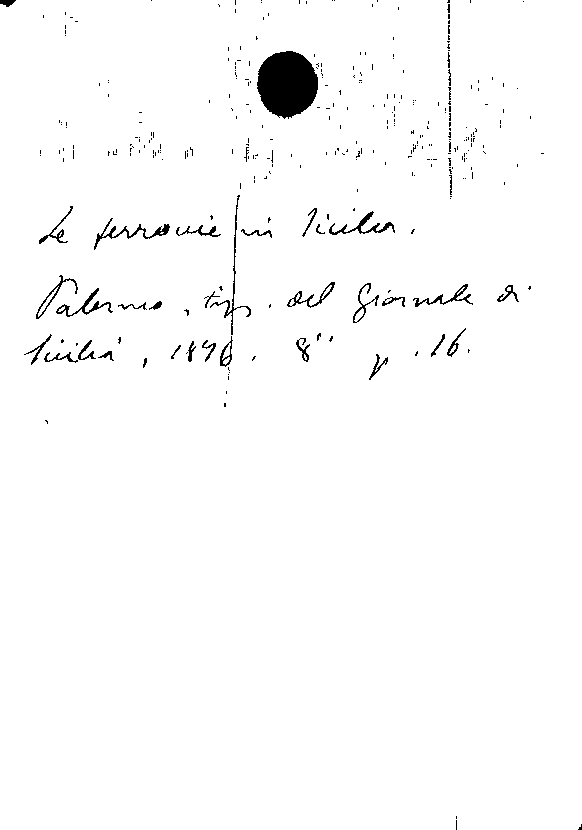 Le ferrovie in Sicilia.
Palermo, tip. del Giornale di
Sicilia, 1896. 8° p. 16.